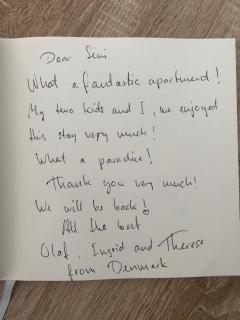 Dear Sini
What a fantastic apartment!
My two kids and I, we enjoyed
this stay very much!
What a paradise!
Thank you very much!
We will be back!
All the best
Olaf, Ingrid and Therese
from Denmark